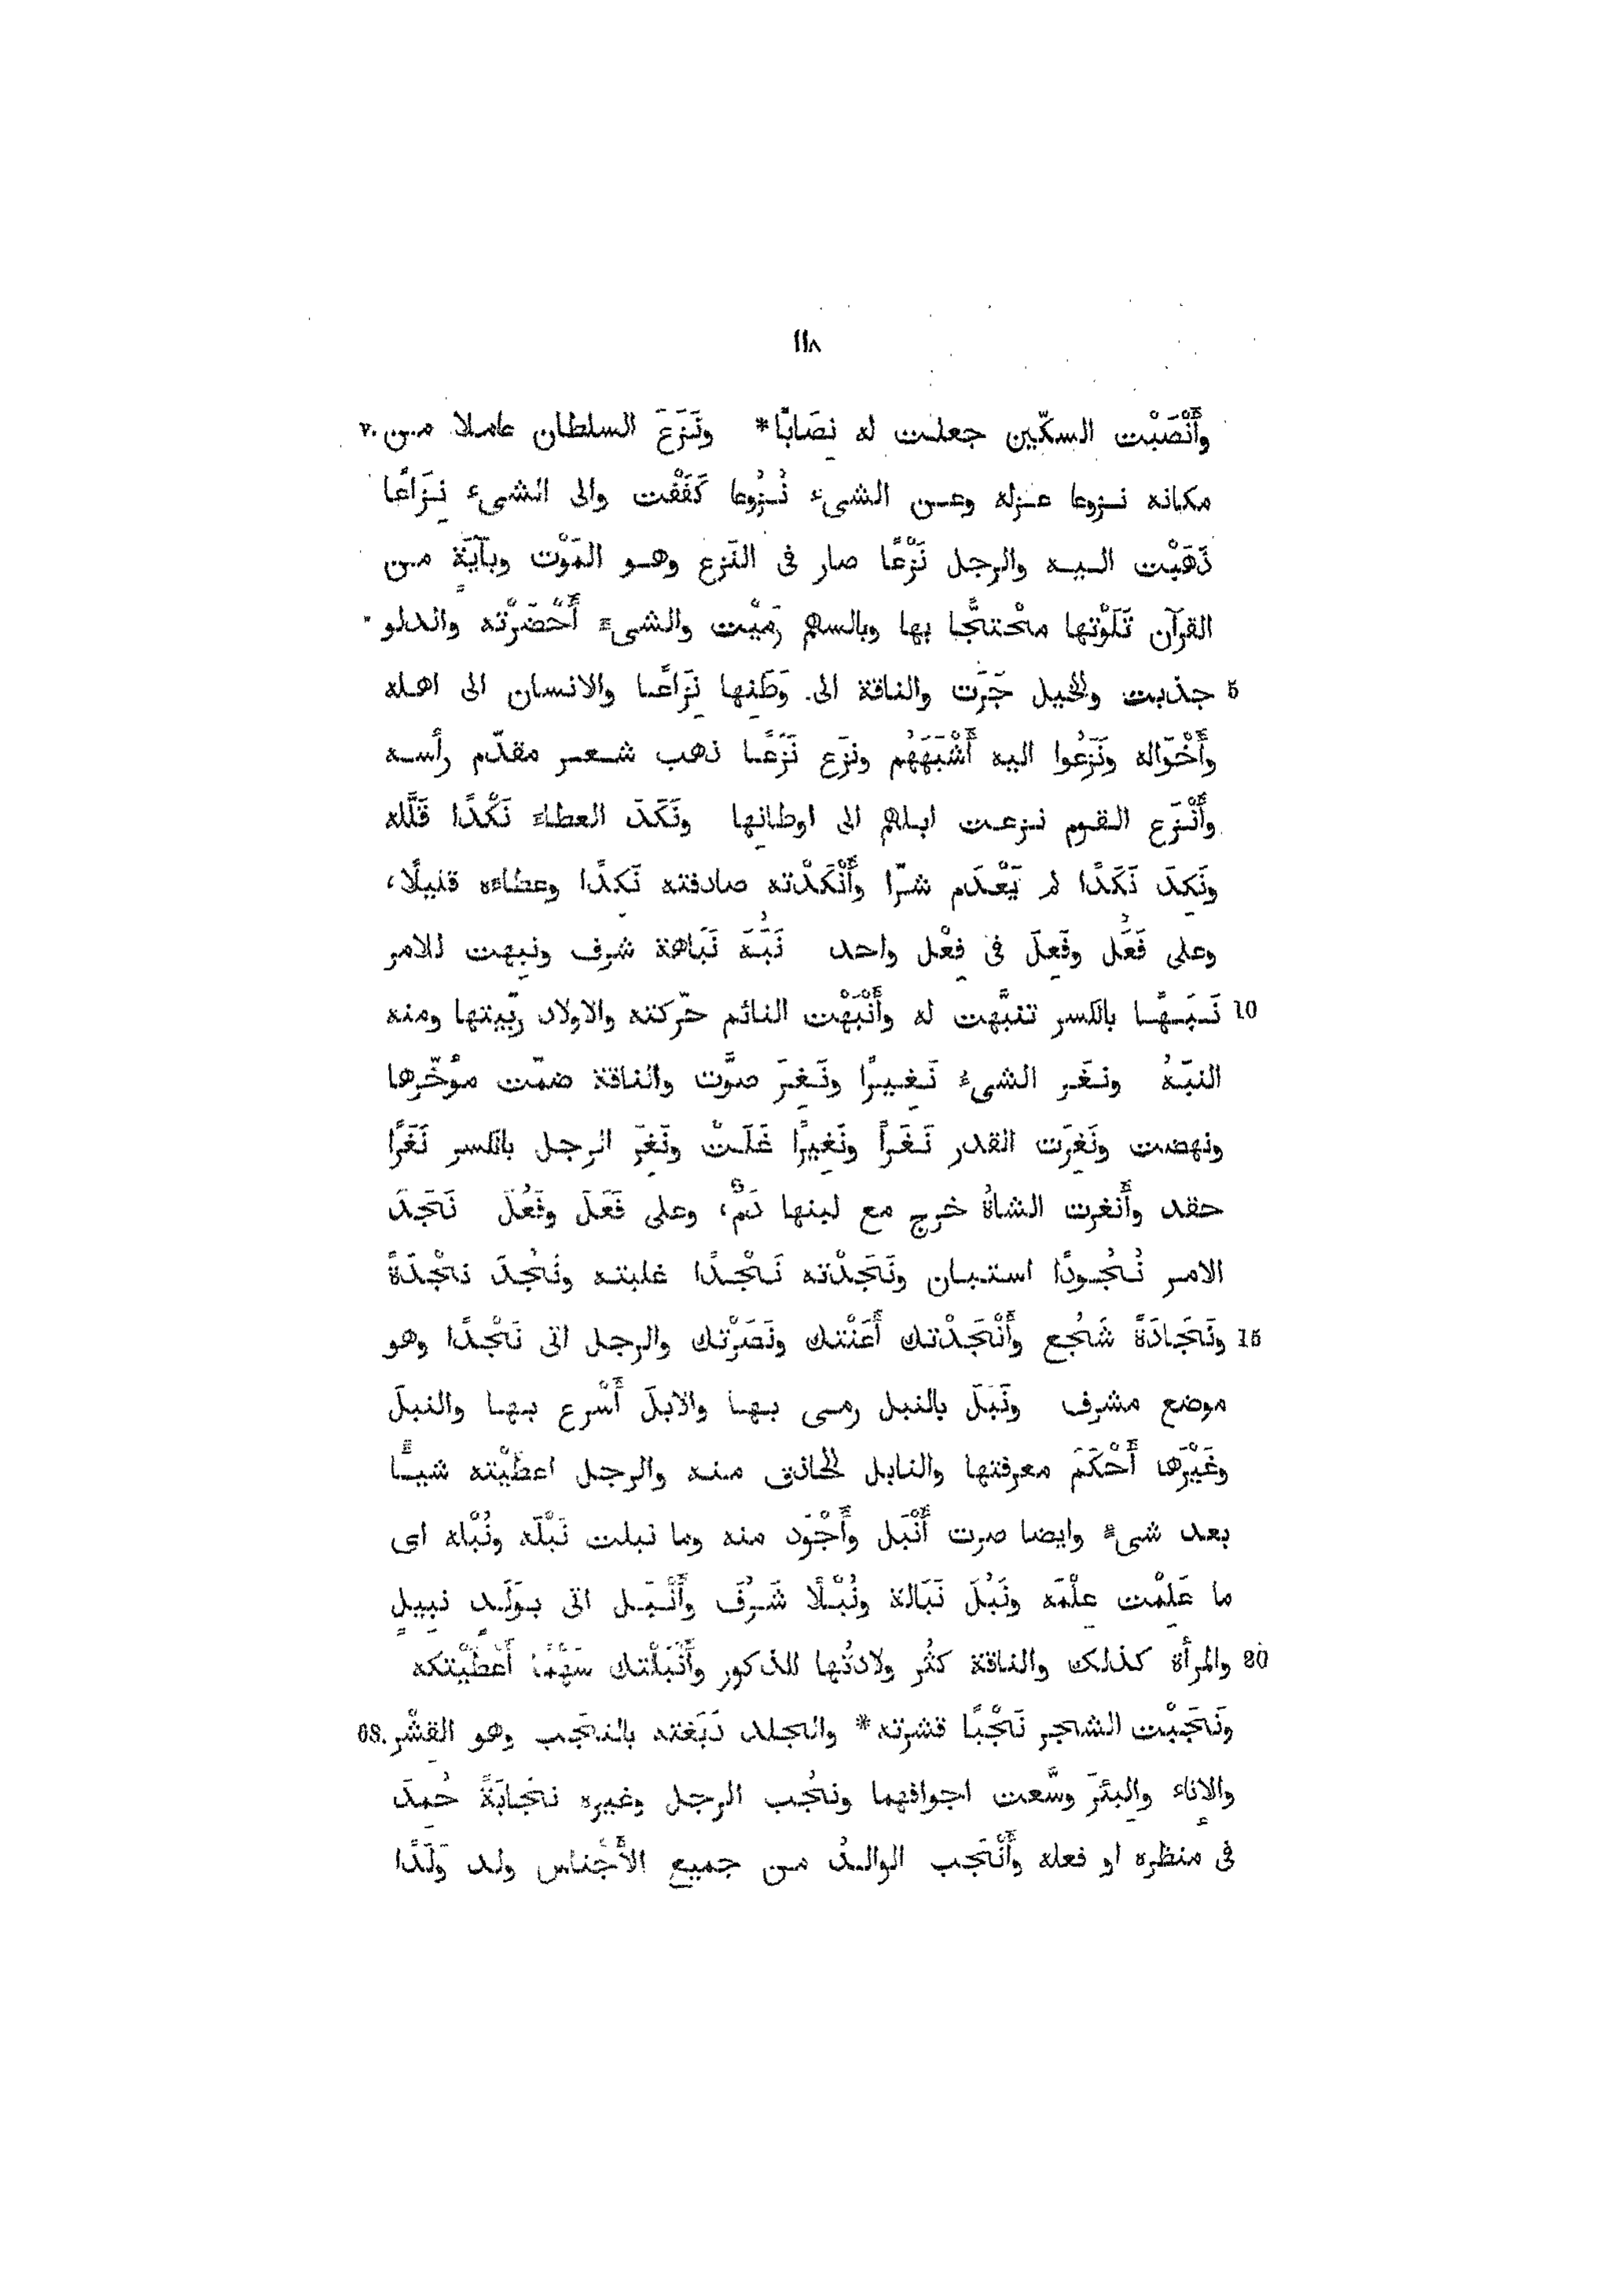 ١١٨
وأَنْصَبْت السكّين جعلت له نِصَابًا* ونَزَعَ السلطان عاملا من v.
مكانه نزوعا عزله وعن الشىء نُزُوعا كَفَفْت والى الشىء نِزَاعًا
ذَهَبْت اليه والرجل نَزْعًا صار فى النَزع وهو المَوْت وبآيَةٍ من
القرآن تَلَوْتها محْتجًّا بها وبالسهم رَمَيْت والشىءَ أَحْضَرْته والدلو
5 جذبت والخيل جَرَت والناقة الى وَطَنِها نِزَاعًا والانسان الى اهله
وأَخْوَاله ونَزَعُوا اليه أَشْبَهَهُم ونزَع نَزَعًا ذهب شعر مقدّم رأسه
وأَنْزَع القوم نزعت ابلهم الى اوطانِها ونَكَدَ العطاءَ نَكْدًا قَلَّله
ونَكِدَ نَكَدًا لم يَعْدَم شرّا وأَنْكَدْته صادفته نَكِدًا وعطاءه قليلًا،
وعلى فَعُل وفَعِلَ فى فِعْل واحد نَبُهَ نَبَاهة شرف ونبِهت للامر
10 نَبَهًا بالكسر تنبَّهت له وأَنْبَهْت النائم حرّكته والاولاد ربّيتها ومنه
النبَهُ ونغَر الشىءُ نَغِيرًا ونَغِرَ صوَّت والناقة ضمّت مؤُخّرها
ونهضت ونَغِرَت القدر نَغَرًا ونَغِيرًا غَلَتْ ونَغِرَ الرجل بالكسر نَغَرًا
حقد وأَنغرت الشاةُ خرج مع لبنها دَمٌ، وعلى فَعَلَ وفَعُلَ نَجَدَ
الامر نُجُودًا استبان ونَجَدْته نَجْدًا غلبته ونَجُدَ نجْدَةً
15 ونَجَادَةً شَجُع وأَنْجَدْتك أَعَنْتك ونَصَرْتك والرجل اتى نَجْدًا وهو
موضع مشرف ونَبَلَ بالنبل رمى بها والابلَ أَسْرع بها والنبلَ
وغَيْرَها أَحْكَمَ معرفتها والنابل الحاذق منه والرجل اعطَيْته شيئًا
بعد شىءٍ وايضا صرت أَنْبَل وأَجْوَد منه وما نبلت نَبْلَه ونُبْله اى
ما عَلِمْت عِلْمَه ونَبُلَ نَبَالة ونُبْلًا شَرُفَ وأَنْبَل اتى بوَلَدٍ نبيلٍ
20 والمرأة كذلك والناقة كثُر ولادتُها للذكور وأَنْبَلْتك سَهْمًا أَعْطَيْتكه
ونَجَبْت الشجر نَجْبًا قشرته* والجلد دَبَغته بالنجَب وهو القِشْر 68.
والإناء والبِئْرَ وسَّعت اجوافهما ونجُب الرجل وغيره نجَابَةً حُمِدَ
فى منظره او فعله وأَنْجَب الوالدُ من جميع الأَجْناس ولد وَلَدًا